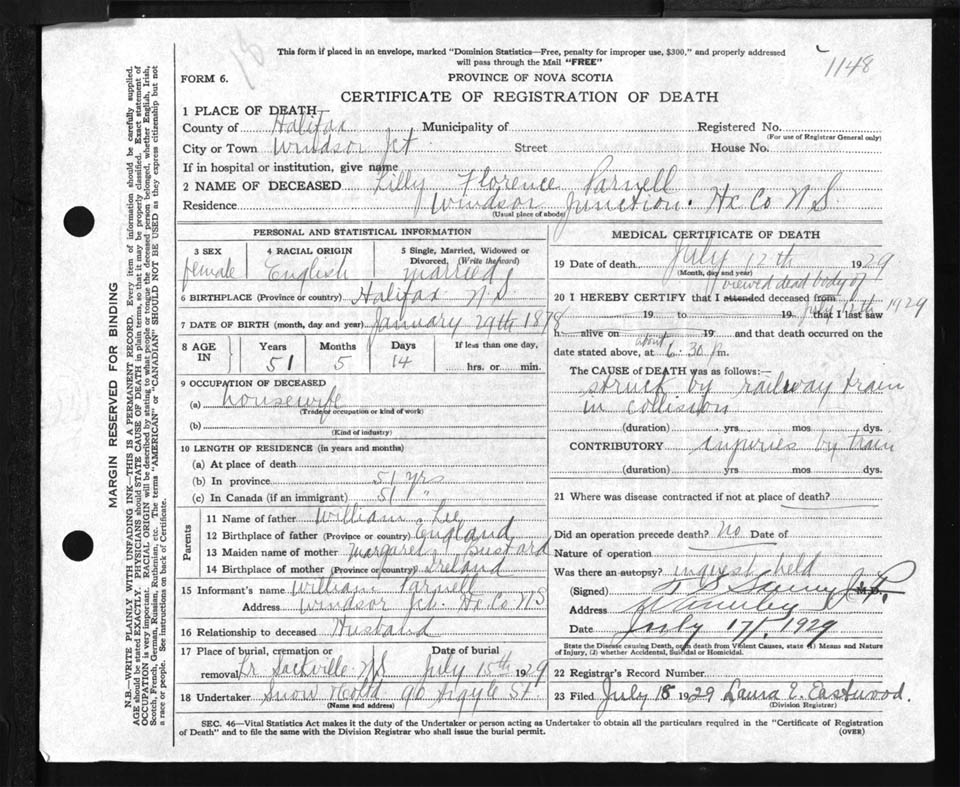 1148
This form if placed in an envelope, marked "Dominion Statistics—Free, penalty for improper use, $300," and properly addressed
will pass through the Mail "FREE"
FORM 6.
PROVINCE OF NOVA SCOTIA
CERTIFICATE OF REGISTRATION OF DEATH
1 PLACE OF DEATH—
County of Halifax Municipality of Registered No.
(For use of Registrar General only)
City or Town Windsor Jct Street House No.
If in hospital or institution, give name
2 NAME OF DECEASED Lilly Florence Parnell
Residence Windsor Junction. Hx Co N S.
(Usual place of abode)
PERSONAL AND STATISTICAL INFORMATION
3 SEX 4 RACIAL ORIGIN 5 Single, Married, Widowed or
Divorced, (Write the word)
female English married
6 BIRTHPLACE (Province or country) Halifax N S
7 DATE OF BIRTH (month, day and year) January 29th 1878
8 AGE IN Years Months Days If less than one day,
51 5 14 hrs. or min.
9 OCCUPATION OF DECEASED
(a) housewife
(Trade occupation or kind of work)
(b)
(Kind of industry)
10 LENGTH OF RESIDENCE (in years and months)
(a) At place of death
(b) In province 51 yrs
(c) In Canada (if an immigrant) 51 "
Parents
11 Name of father William Lee
12 Birthplace of father (Province or country) England
13 Maiden name of mother Margaret Bustard
14 Birthplace of mother (Province or country) Ireland
15 Informant's name William Parnell
Address Windsor Jct. Hx Co N S
16 Relationship to deceased Husband
17 Place of burial, cremation or removal Date of burial
Lr Sackville N S July 15th 1929
18 Undertaker Snow & Co Ltd 90 Argyle St.
(Name and address)
MEDICAL CERTIFICATE OF DEATH
19 Date of death July 12th 1929
(Month, day and year)
viewed dead body of
20 I HEREBY CERTIFY that I attended deceased from
19 to 19 that I last saw
1929
h alive on 19 and that death occurred on the
date stated above, at about 6.30 p.m.
The CAUSE of DEATH was as follows:—
struck by railway train
in collision
(duration) yrs mos dys.
CONTRIBUTORY injuries by train
(duration) yrs mos dys.
21 Where was disease contracted if not at place of death?
Did an operation precede death? No Date of
Nature of operation
Was there an autopsy? inquest held
(Signed) M.D.
Address
Date July 17, 1929
State the Disease causing Death, or in death from Violent Causes, state (1) Means and Nature
of Injury, (2) whether Accidental, Suicidal or Homicidal.
22 Registrar's Record Number
23 Filed July 18 1929 Laura E. Eastwood.
(Division Registrar)
SEC. 46—Vital Statistics Act makes it the duty of the Undertaker or person acting as Undertaker to obtain all the particulars required in the "Certificate of Registration
of Death" and to file the same with the Division Registrar who shall issue the burial permit.
(OVER)
MARGIN RESERVED FOR BINDING
N.B.—WRITE PLAINLY WITH UNFADING INK—THIS IS A PERMANENT RECORD. Every item of information should be carefully supplied.
AGE should be stated EXACTLY. PHYSICIANS should STATE CAUSE OF DEATH in plain terms, so that it may be properly classified. Exact statement of
OCCUPATION is very important. RACIAL ORIGIN will be described by stating to what people or tongue the deceased person belonged, whether English, Irish,
Scotch, French, German, Russian, Ruthenian, etc. The terms "AMERICAN" or "CANADIAN" SHOULD NOT BE USED as they express citizenship but not
a race or people. See instructions on back of Certificate.